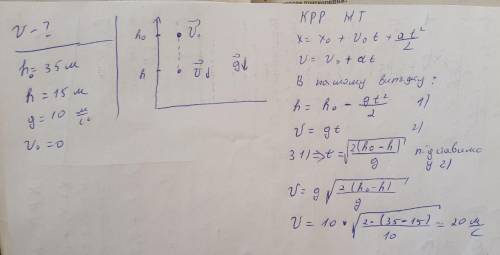 V - ?
h₀ = 35 м
h = 15 м
g = 10 м/с²
v₀ = 0
h₀
V⃗₀
h
V⃗↓
g⃗↓
КРР МТ
x = x₀ + v₀t + at²/2
v = v₀ + at
В нашому випадку:
h = h₀ - gt²/2 1)
v = gt 2)
З 1) ⇒ t = √(2(h₀-h)/g) підставимо
у 2)
v = g √(2(h₀-h)/g)
v = 10 * √(2·(35-15)/10) = 20 м/с